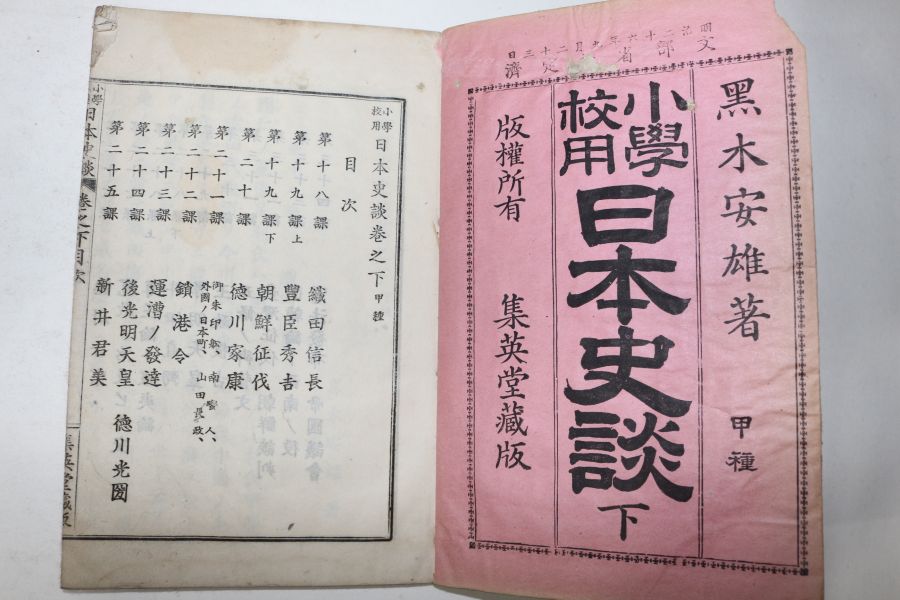 明治二十六年九月二十三日
文部省定濟
黑木安雄著 甲種
小學校用 日本史談 下
版權所有 集英堂藏版
小學校用 日本史談卷之下 甲種
目次
第十八課 織田信長
第十九課上 豐臣秀吉
第十九課下 朝鮮征伐
第二十課 德川家康
第二十一課 御朱印船、南蠻人、
外國ノ日本町、山田長政、
第二十二課 鎖港令
第二十三課 運漕ノ發達
第二十四課 後光明天皇 德川光圀
第二十五課 新井君美
小學 日本史談 卷之下目次 集英堂藏版